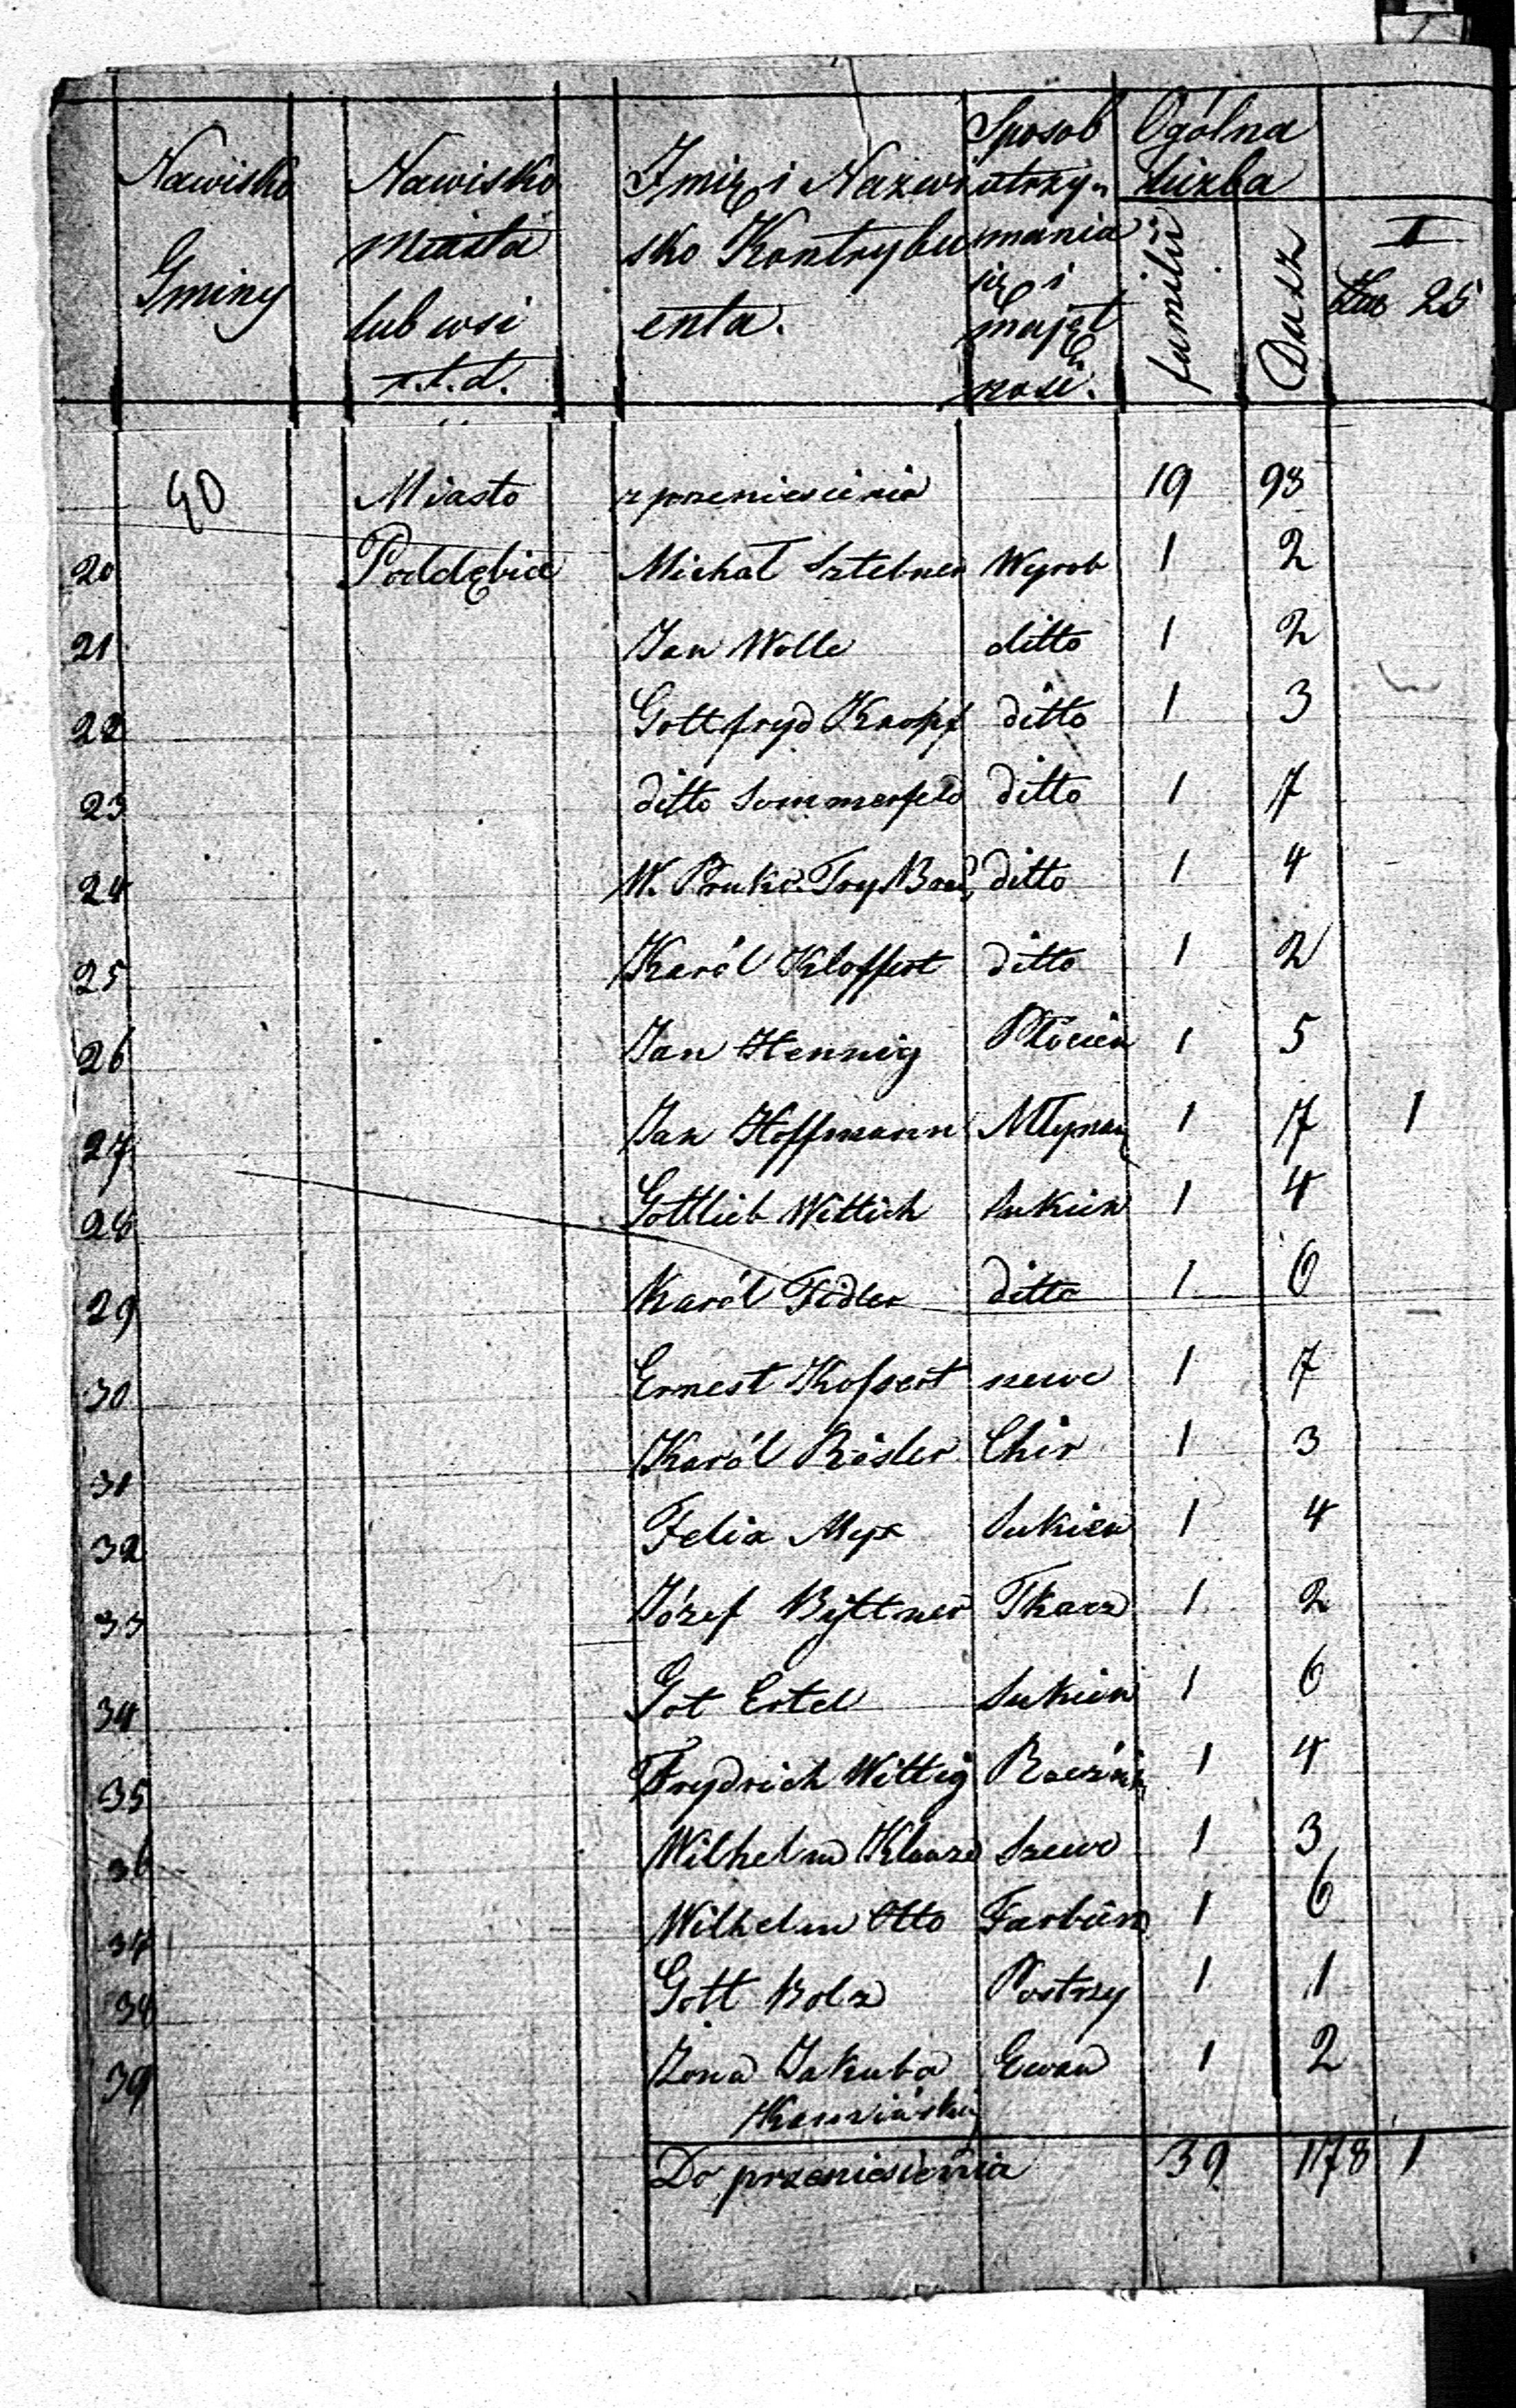 Nawisko Gminy
Nawisko miasta lub wsi i.t.d.
Imię i Nazwisko Kontrybuenta.
Sposob utrzymania się i majętność.
Ogólna liczba
familii
Dusz
I
25
40 Miasto z przeniesienia 19 98
20 Poddębice Michał Sztebner Wyrob 1 2
21 Jan Wolle ditto 1 2
22 Gottfryd Knopf ditto 1 3
23 ditto Sommerfeld ditto 1 7
24 W. ditto 1 4
25 Karól Kloffert ditto 1 2
26 Jan Hennig Płócien 1 5
27 Jan Hoffmann Młynarz 1 7 1
28 Gottlieb Wittich Sukien 1 4
29 Karól Fidler ditto 1 6
30 Ernest 1 7
31 Karól Rösler Chir 1 3
32 Felix Sukien 1 4
33 Józef Byttner Tkacz 1 2
34 Got Ertel Sukien 1 6
35 Frydrich Wittig 1 4
36 Wilhelm Szewc 1 3
37 Wilhelm Otto Farbierz 1 6
38 Gott Bolz Postrzy 1 1
39 Żona Jakuba Ewan 1 2
Do przeniesienia 39 178 1